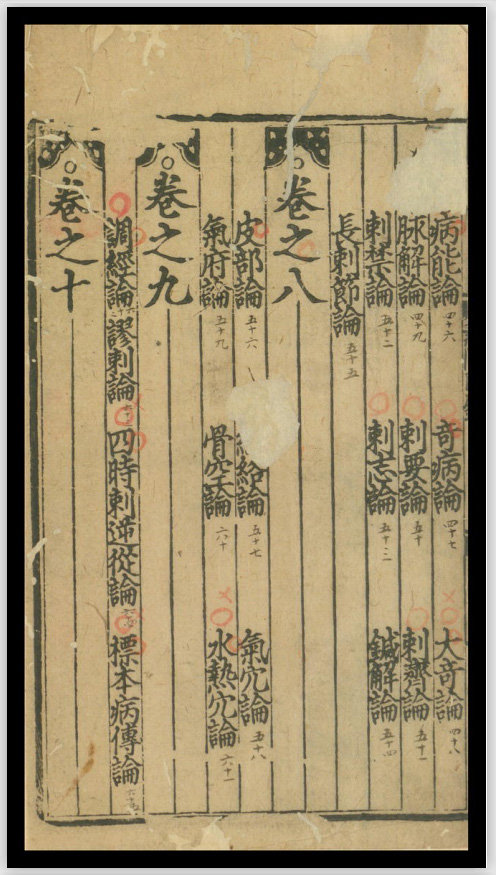 病能論 四十六 奇病論 四十七 大奇論 四十八
脉解論 四十九 刺要論 五十 刺齊論 五十一
刺禁論 五十二 刺志論 五十三 鍼解論 五十四
長刺節論 五十五
卷之八
皮部論 五十六 絡論 五十七 氣穴論 五十八
氣府論 五十九 骨空論 六十 水熱穴論 六十一
卷之九
調經論 謬刺論 四時刺逆從論 標本病傳論
卷之十